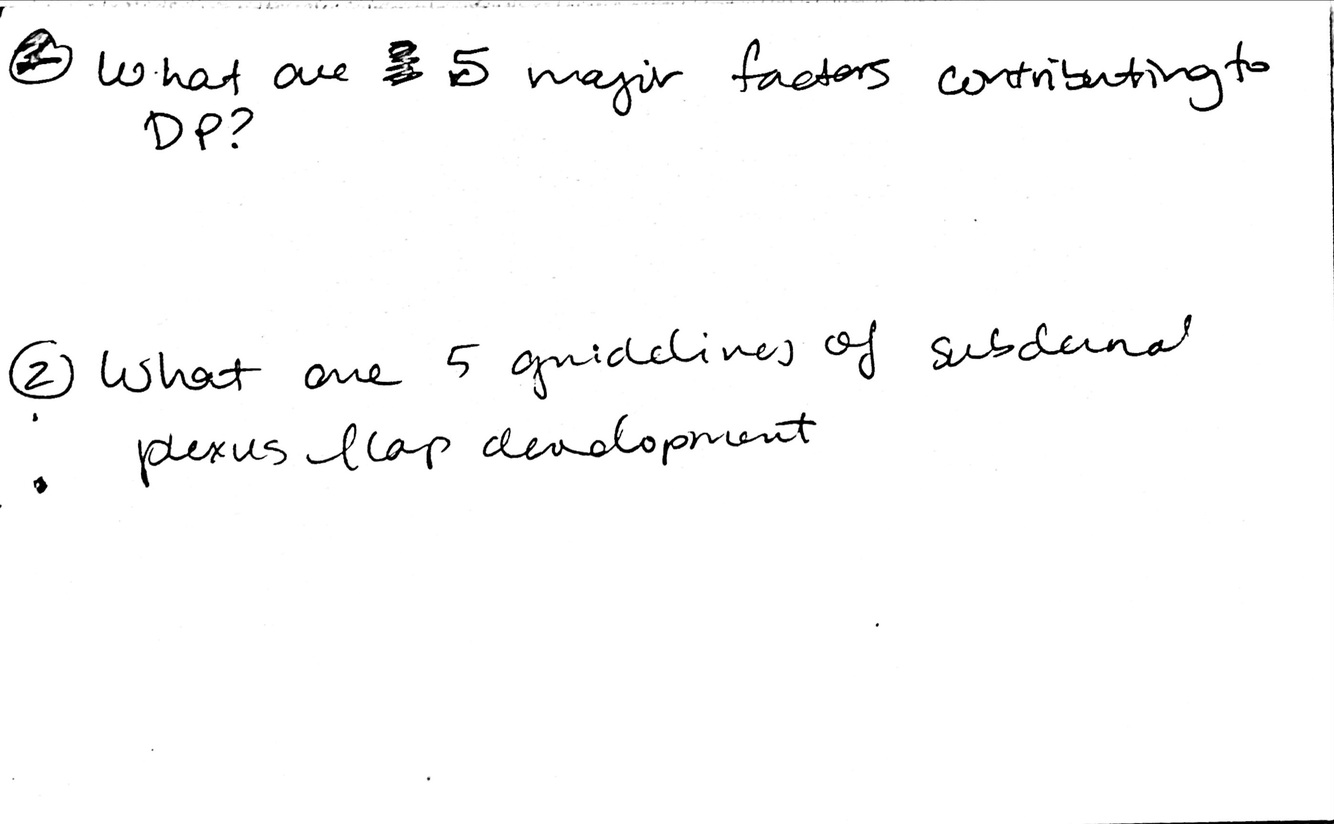 What are 5 major factors contributing to
DP?
② What are 5 guidelines of subdermal
plexus flap development